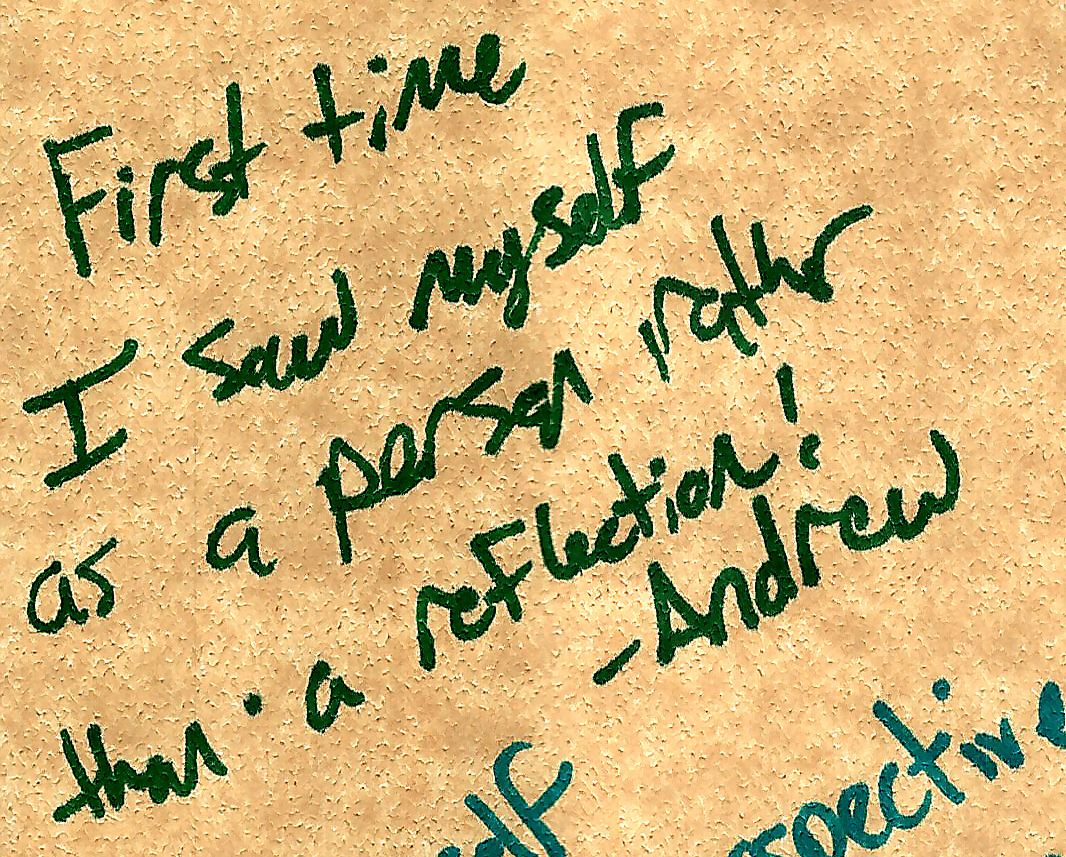 First time
I saw myself
as a person rather
than a reflection!
-Andrew